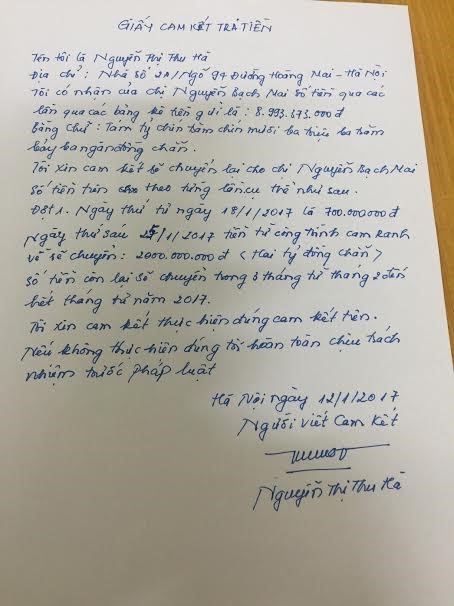 GIẤY CAM KẾT TRẢ TIỀN
Tên tôi là Nguyễn Thị Thu Hà
Địa chỉ: Nhà số 2A/Ngõ 94 Đường Hoàng Mai - Hà Nội
Tôi có nhận của chị Nguyễn Bạch Mai số tiền qua các
lần qua các bảng kê tiền gửi là: 8.993.373.000đ
Bằng chữ: Tám tỷ chín trăm chín mươi ba triệu ba trăm
bảy ba ngàn đồng chẵn.
Tôi xin cam kết sẽ chuyển lại cho chị Nguyễn Bạch Mai
số tiền trên cho theo từng lần cụ thể như sau.
Đợt 1. Ngày thứ tư ngày 18/1/2017 là 700.000.000đ
Ngày thứ sáu 25/1/2017 tiền từ công trình cam Ranh
về sẽ chuyển: 2000.000.000đ <Hai tỷ đồng chẵn>
số tiền còn lại sẽ chuyển trong 3 tháng từ tháng 2 đến
hết tháng tư năm 2017.
Tôi xin cam kết thực hiện đúng cam kết trên.
Nếu không thực hiện đúng tôi hoàn toàn chịu trách
nhiệm trước pháp luật
Hà Nội ngày 12/1/2017
Người viết Cam Kết
Nguyễn Thị Thu Hà